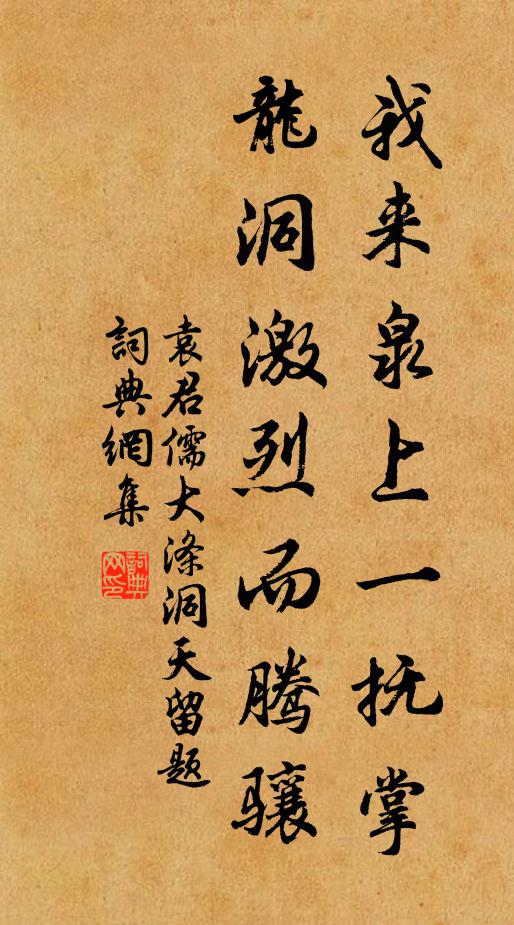 我来泉上一抚掌
龍洞激烈而腾骧
袁君儒大涤洞天留题
詞典網集
詞典网印